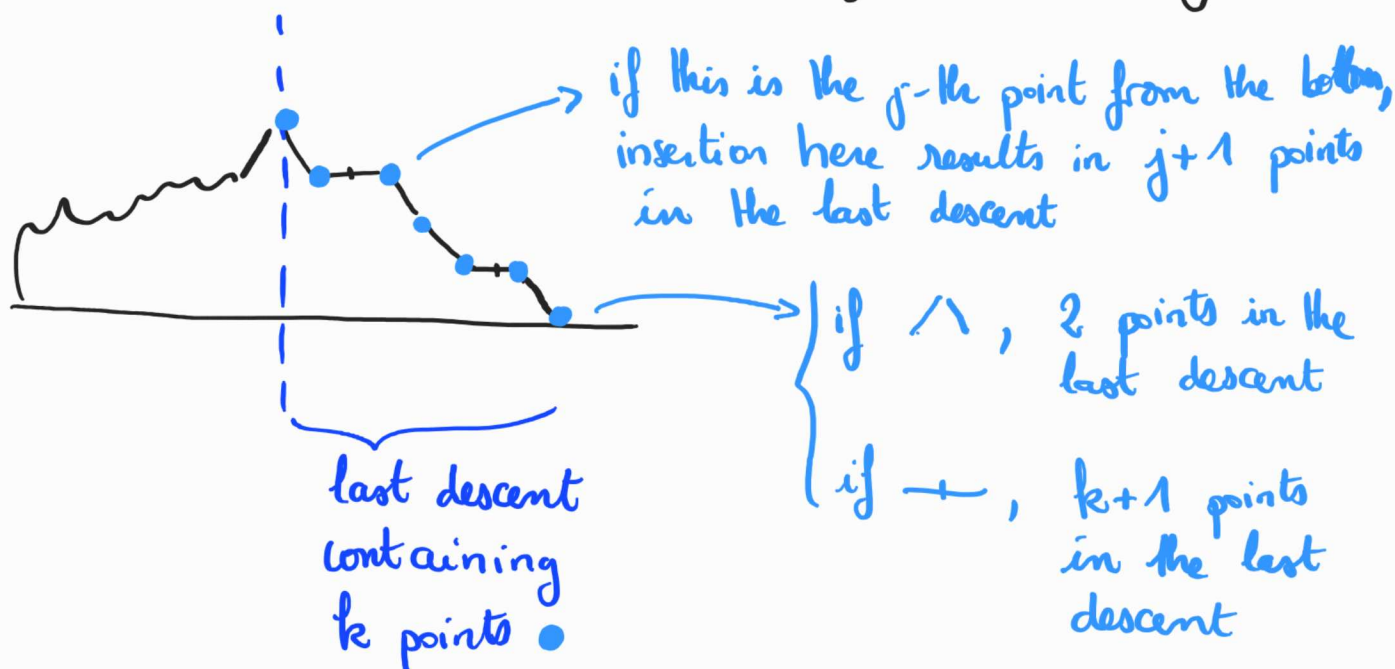 if this is the j-th point from the bottom,
insertion here results in j+1 points
in the last descent
if ∧, 2 points in the
last descent
if —+—, k+1 points
in the last
descent
last descent
containing
k points